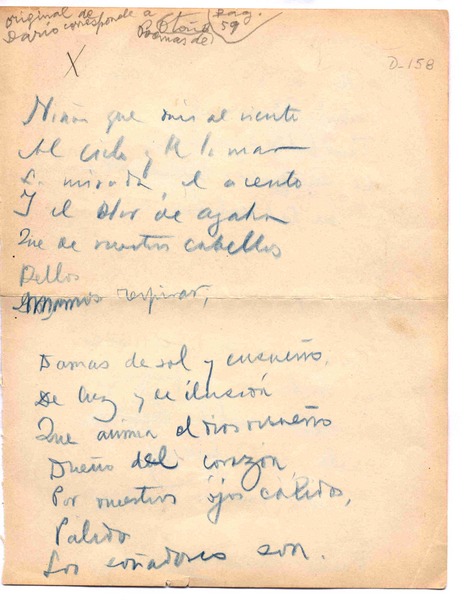 original de
Darío corresponde a Otoño Pag.
Poemas de 59
X
D-158
Niñas que dais al viento
Al cielo y a la mar
La mirada, el acento
Y el olor de azahar
Que de vuestros cabellos
Bellos
Amamos respirar,
Damas de sol y ensueño,
De luz y de ilusión
Que anima el dios risueño
Dueño del corazón,
Por vuestros ojos cálidos,
Palido
Los soñadores son.